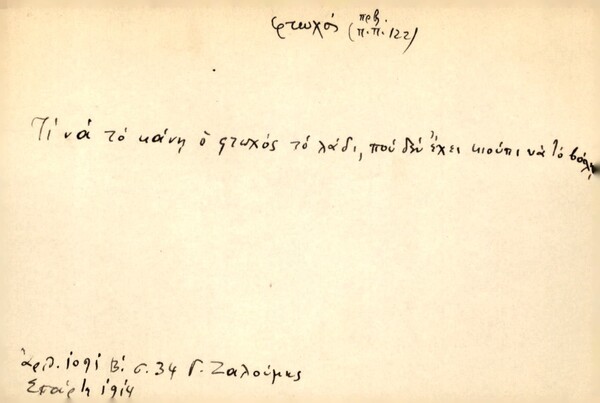 φτωχός (πρβ. π.π. 122)
Τί νά τό κάνη ὁ φτωχός τό λάδι, πού δέν ἔχει κιούπι νά τό βάλη
Ἀριθ. 1091 Β! σ. 34 Γ. Ζαλούμης
Σπάρτη 1914